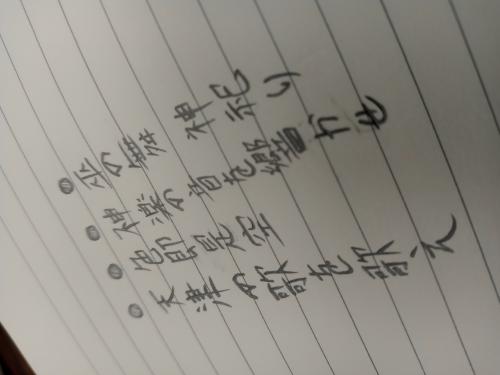 ・巫の舞 神祀り
・神楽の音を響かせ
・色即是空
・天津の歌を歌え